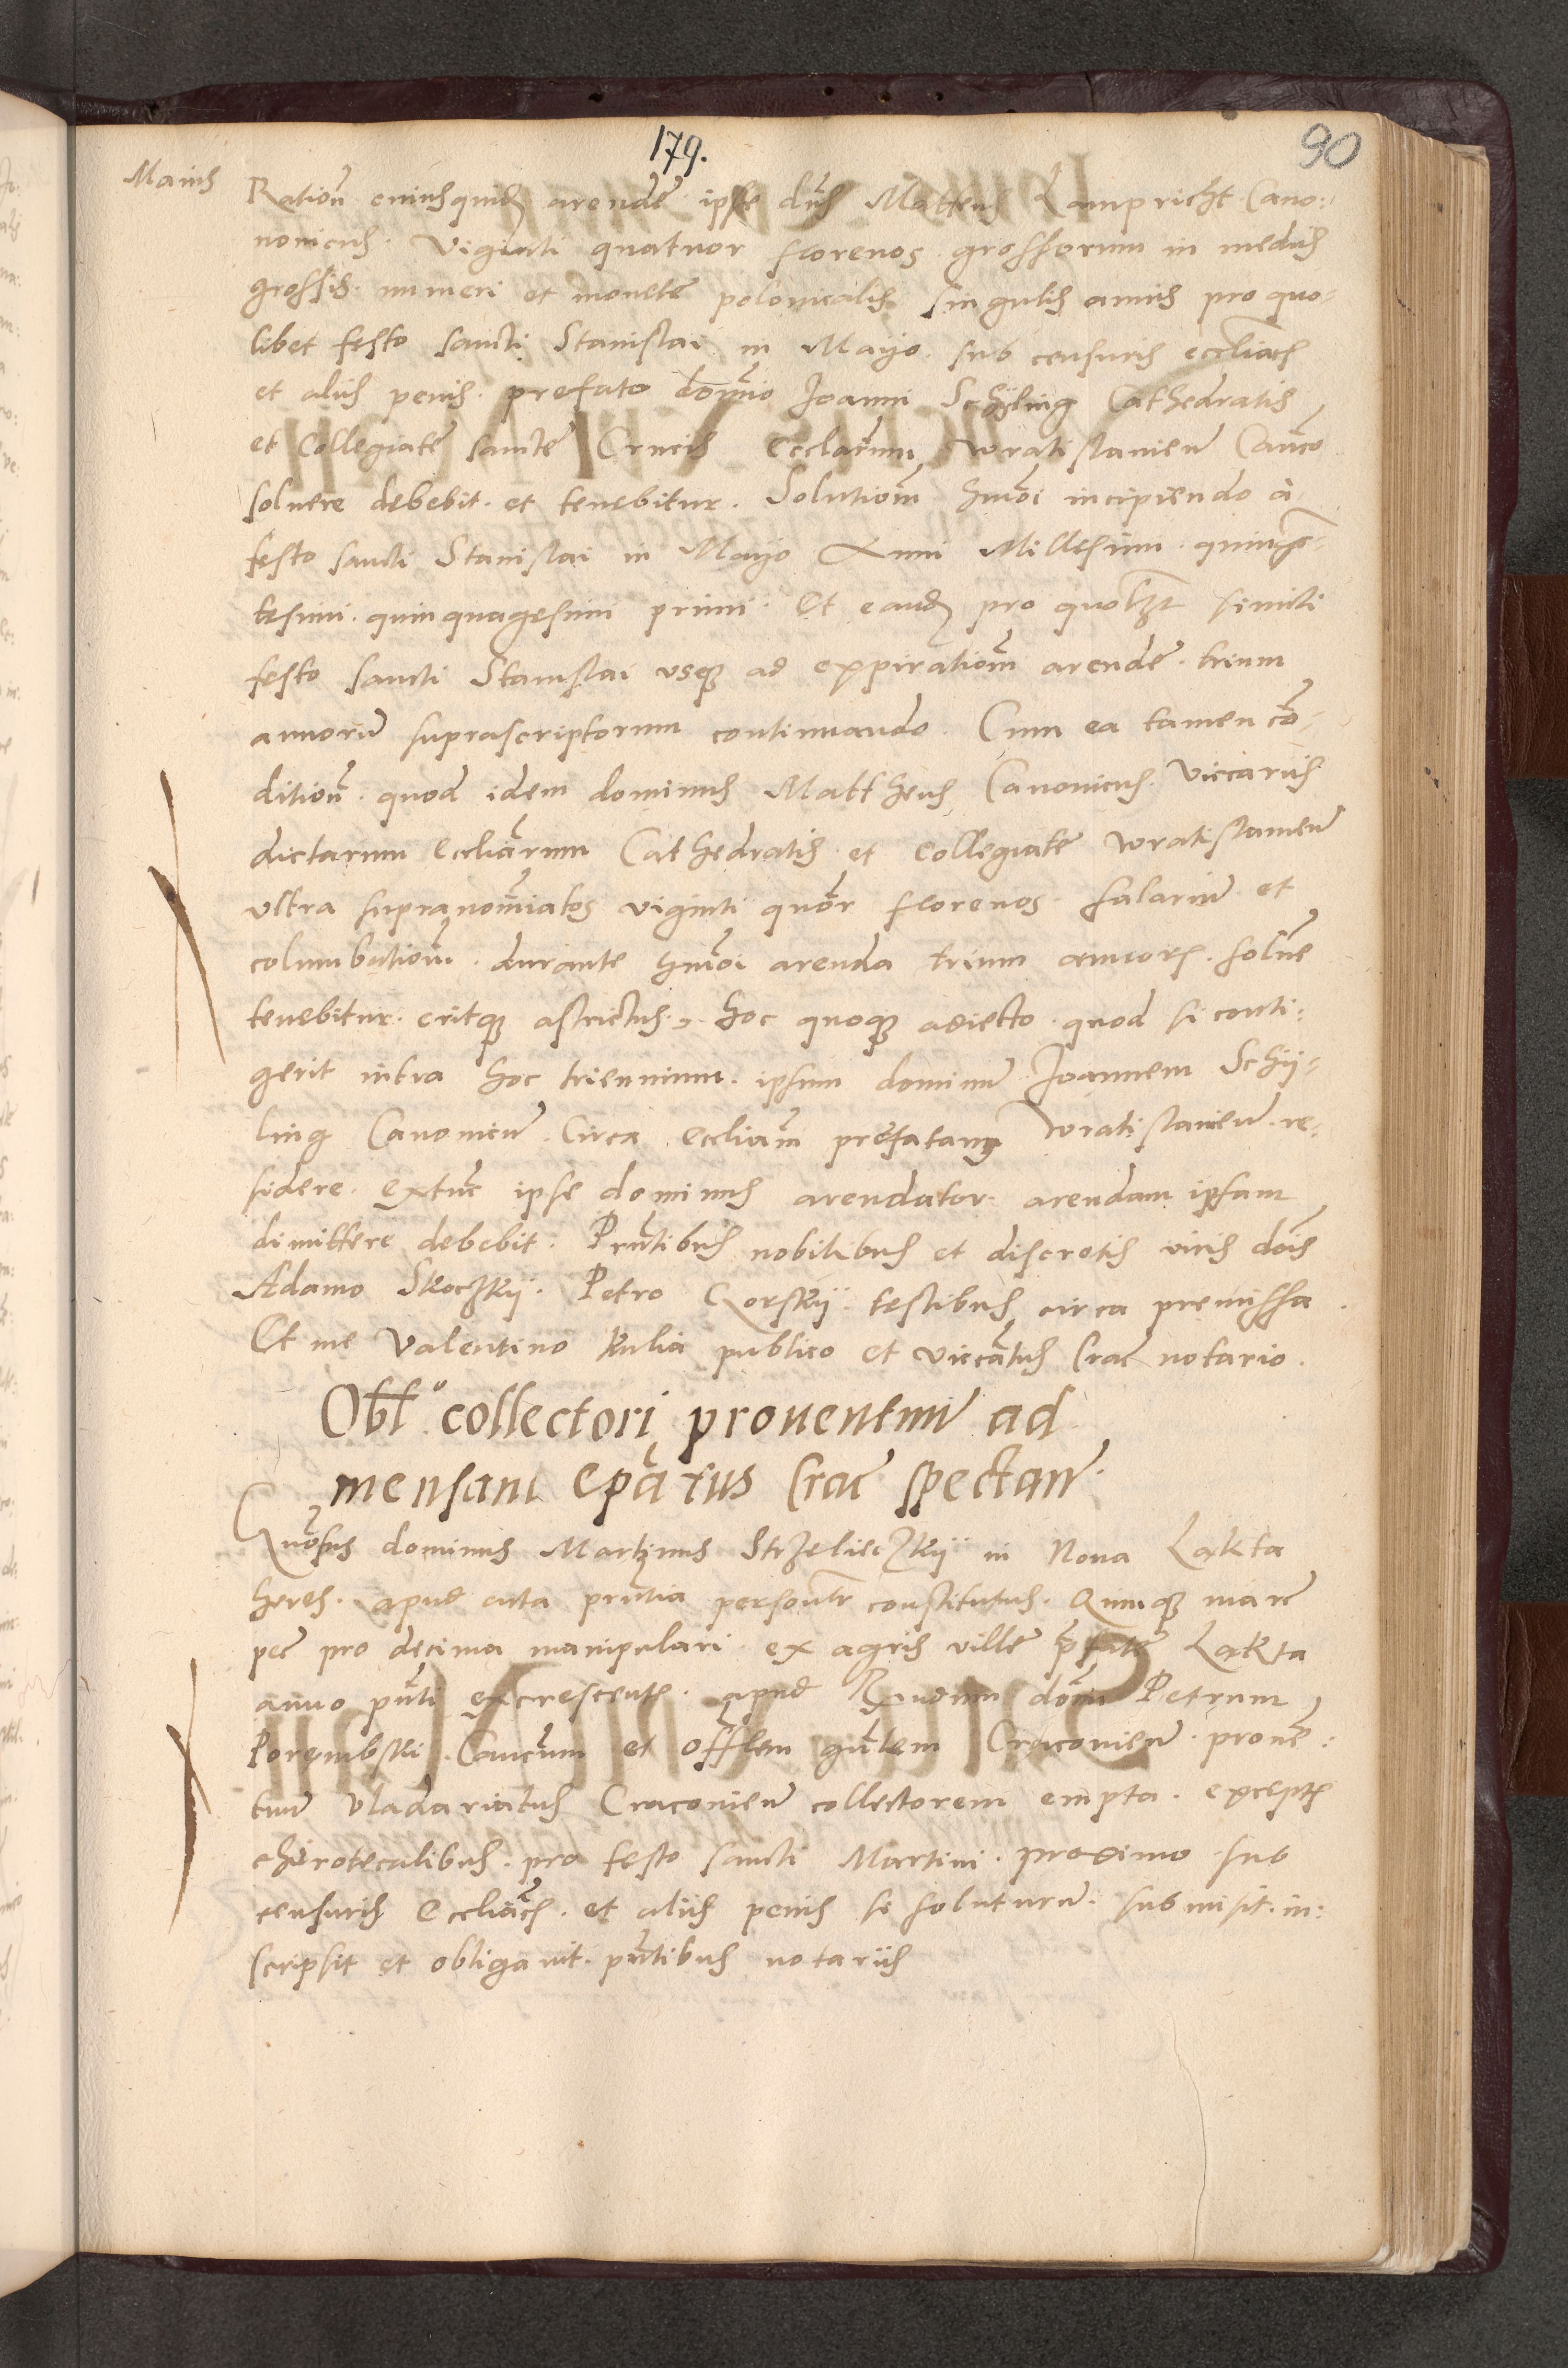 179.
90
Maius
Ration̄ cuiusquid arende ipse dn̄s Mattheus Lampricht Cano:
nonicus. Viginti quatuor florenos grossorum in mediis
grossis. numeri et monete polonicalis singulis annis pro quo-
libet festo sancti Stanislai in Mayo. sub censuris eccliacis
et aliis penis. prefato domino Joanni Schÿling Cathedralis
et Collegiate sancte Crucis Ecclarum Wratislauien̄ Canco
soluere debebit. et tenebitur. Solution̄em hm̄oi incipiendo à
festo sancti Stanislai in Mayo Anni Millesimi quinge-
tesimi. quinquagesimi primi. Et eand pro quolzt simili
festo sancti Stanislai vsq ad expiration̄em arende. trium
annorū suprascriptorum continuando. Cum ea tamen co-
dition̄. quod idem dominus Mattheus Canonicus Viccariis
dictarum Eccliarum Cathedralis et Collegiate Wratislauien̄
vltra supranominatos viginti quor florenos. salariū et
columbation̄em. durante hm̄oi arenda trium annor. soluē
tenebitur. eritq astrictus. hoc quoq adiecto quod si conti:
gerit intra hoc triennium. ipsum dominū Joannem Schÿ-
ling Canonicū. Circa eccliam prefatam Wratislauien̄. re-
sidere. extunc ipse dominus arendator arendam ipsam
dimittere debebit. Pn̄tibus nobilibus et discretis viris dn̄is
Adamo Skoczkÿ. Petro Gorskÿ. testibus circa premissa.
Et me Valentino Kulia publico et viccātus Crac̄ notario.
Oblo collectori prouentuū ad
mensam Epatus Crac̄ spectan̄.
Gn̄osus dominus Martinus Strzelieczkÿ in Noua Lakta
heres. apud acta pn̄tia personlr constitutus. Quinq marc̄
pec̄ pro decima manipulari. ex agris ville pfate Lakta
anno pn̄ti excrescente. apud Rn̄dum dom̄ Petrum
Porembski. Cancum et Offlem gn̄lem Cracouien̄. proue:
tuū Vladariatus Cracouien̄ collectorem empta. except
chirotecalibus. pro festo sancti Martini. proximo sub
censuris Eccliacis. et aliis penis se soluturū. submisit. in:
scripsit et obligauit. pn̄tibus notariis